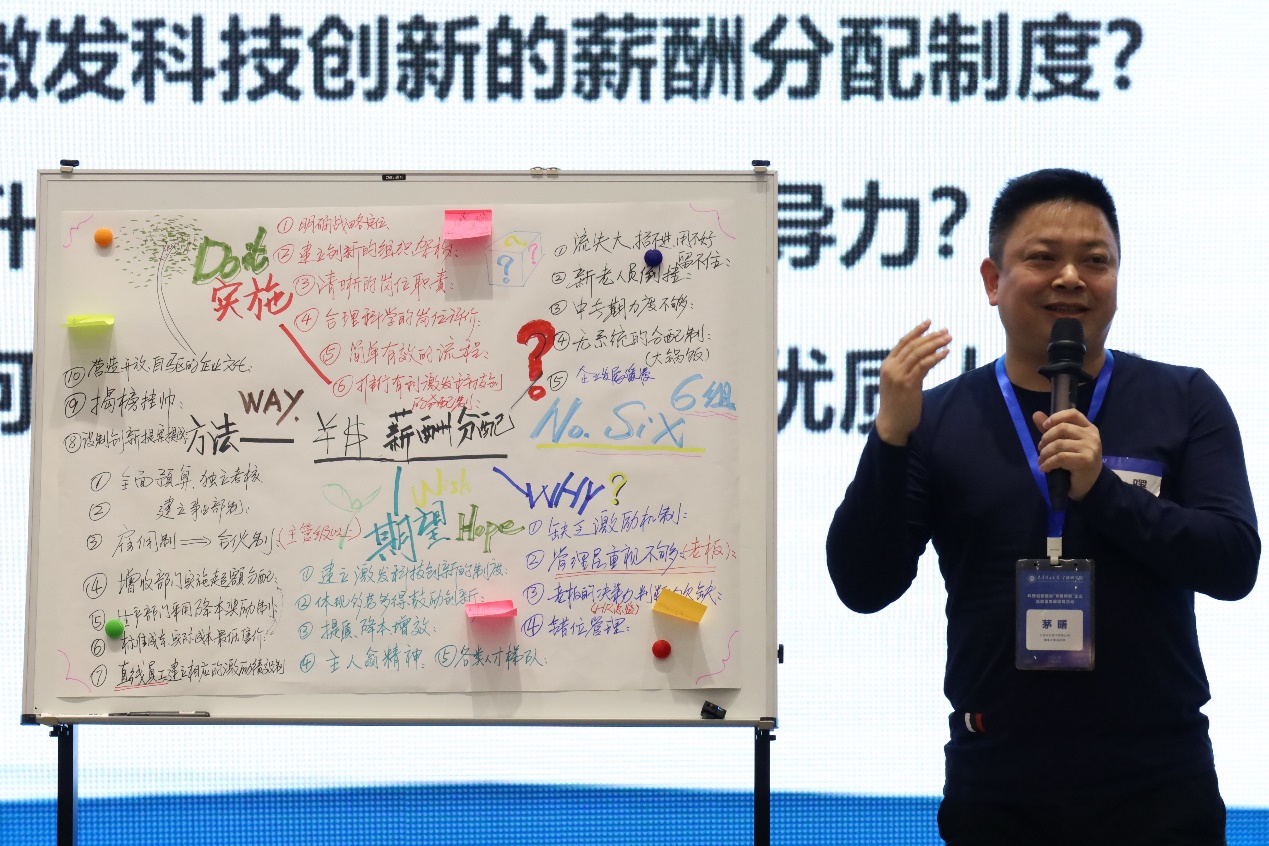 激发科技创新的薪酬分配制度?
升
导力?
何
优质
Do it
实施
① 明确战略定位
② 建立创新的组织架构:
③ 清晰的岗位职责:
④ 合理科学的岗位评价:
⑤ 简单有效的流程:
⑥ 推行有利激发科技创
的分配制:
?
① 流失大,招不进,用不好
留不住:
② 新老人员倒挂:
③ 中长期力度不够:
④ 无系统的分配制:
(大锅饭)
⑤ 企业发展
No. Six 6组
⑩ 营造开放,自驱的企业文化:
⑨ 揭榜挂帅:
⑧ 设制创新提案
方法
WAY.
① 全面预算,独立考核
② 建立事业部制:
③ 雇佣制⟹合伙制:(主管级以上)
④ 增收部门实施超额分配:
⑤ 生产部门享用降本奖励制:
⑥ 标准成本,实际成本
⑦ 直线员工建立相应的激励绩效制
¥$ 薪酬分配
Wish
期望 Hope
① 建立激发科技创新的制度:
② 体现多劳多得鼓励创新:
③ 提质、降本增效:
④ 主人翁精神:
⑤ 各类人才梯队:
WHY?
① 缺乏激励机制:
② 管理层重视不够(老板):
③ 老板的决策力判断力欠缺:
(HR总监)
④ 错位管理:
茅曙